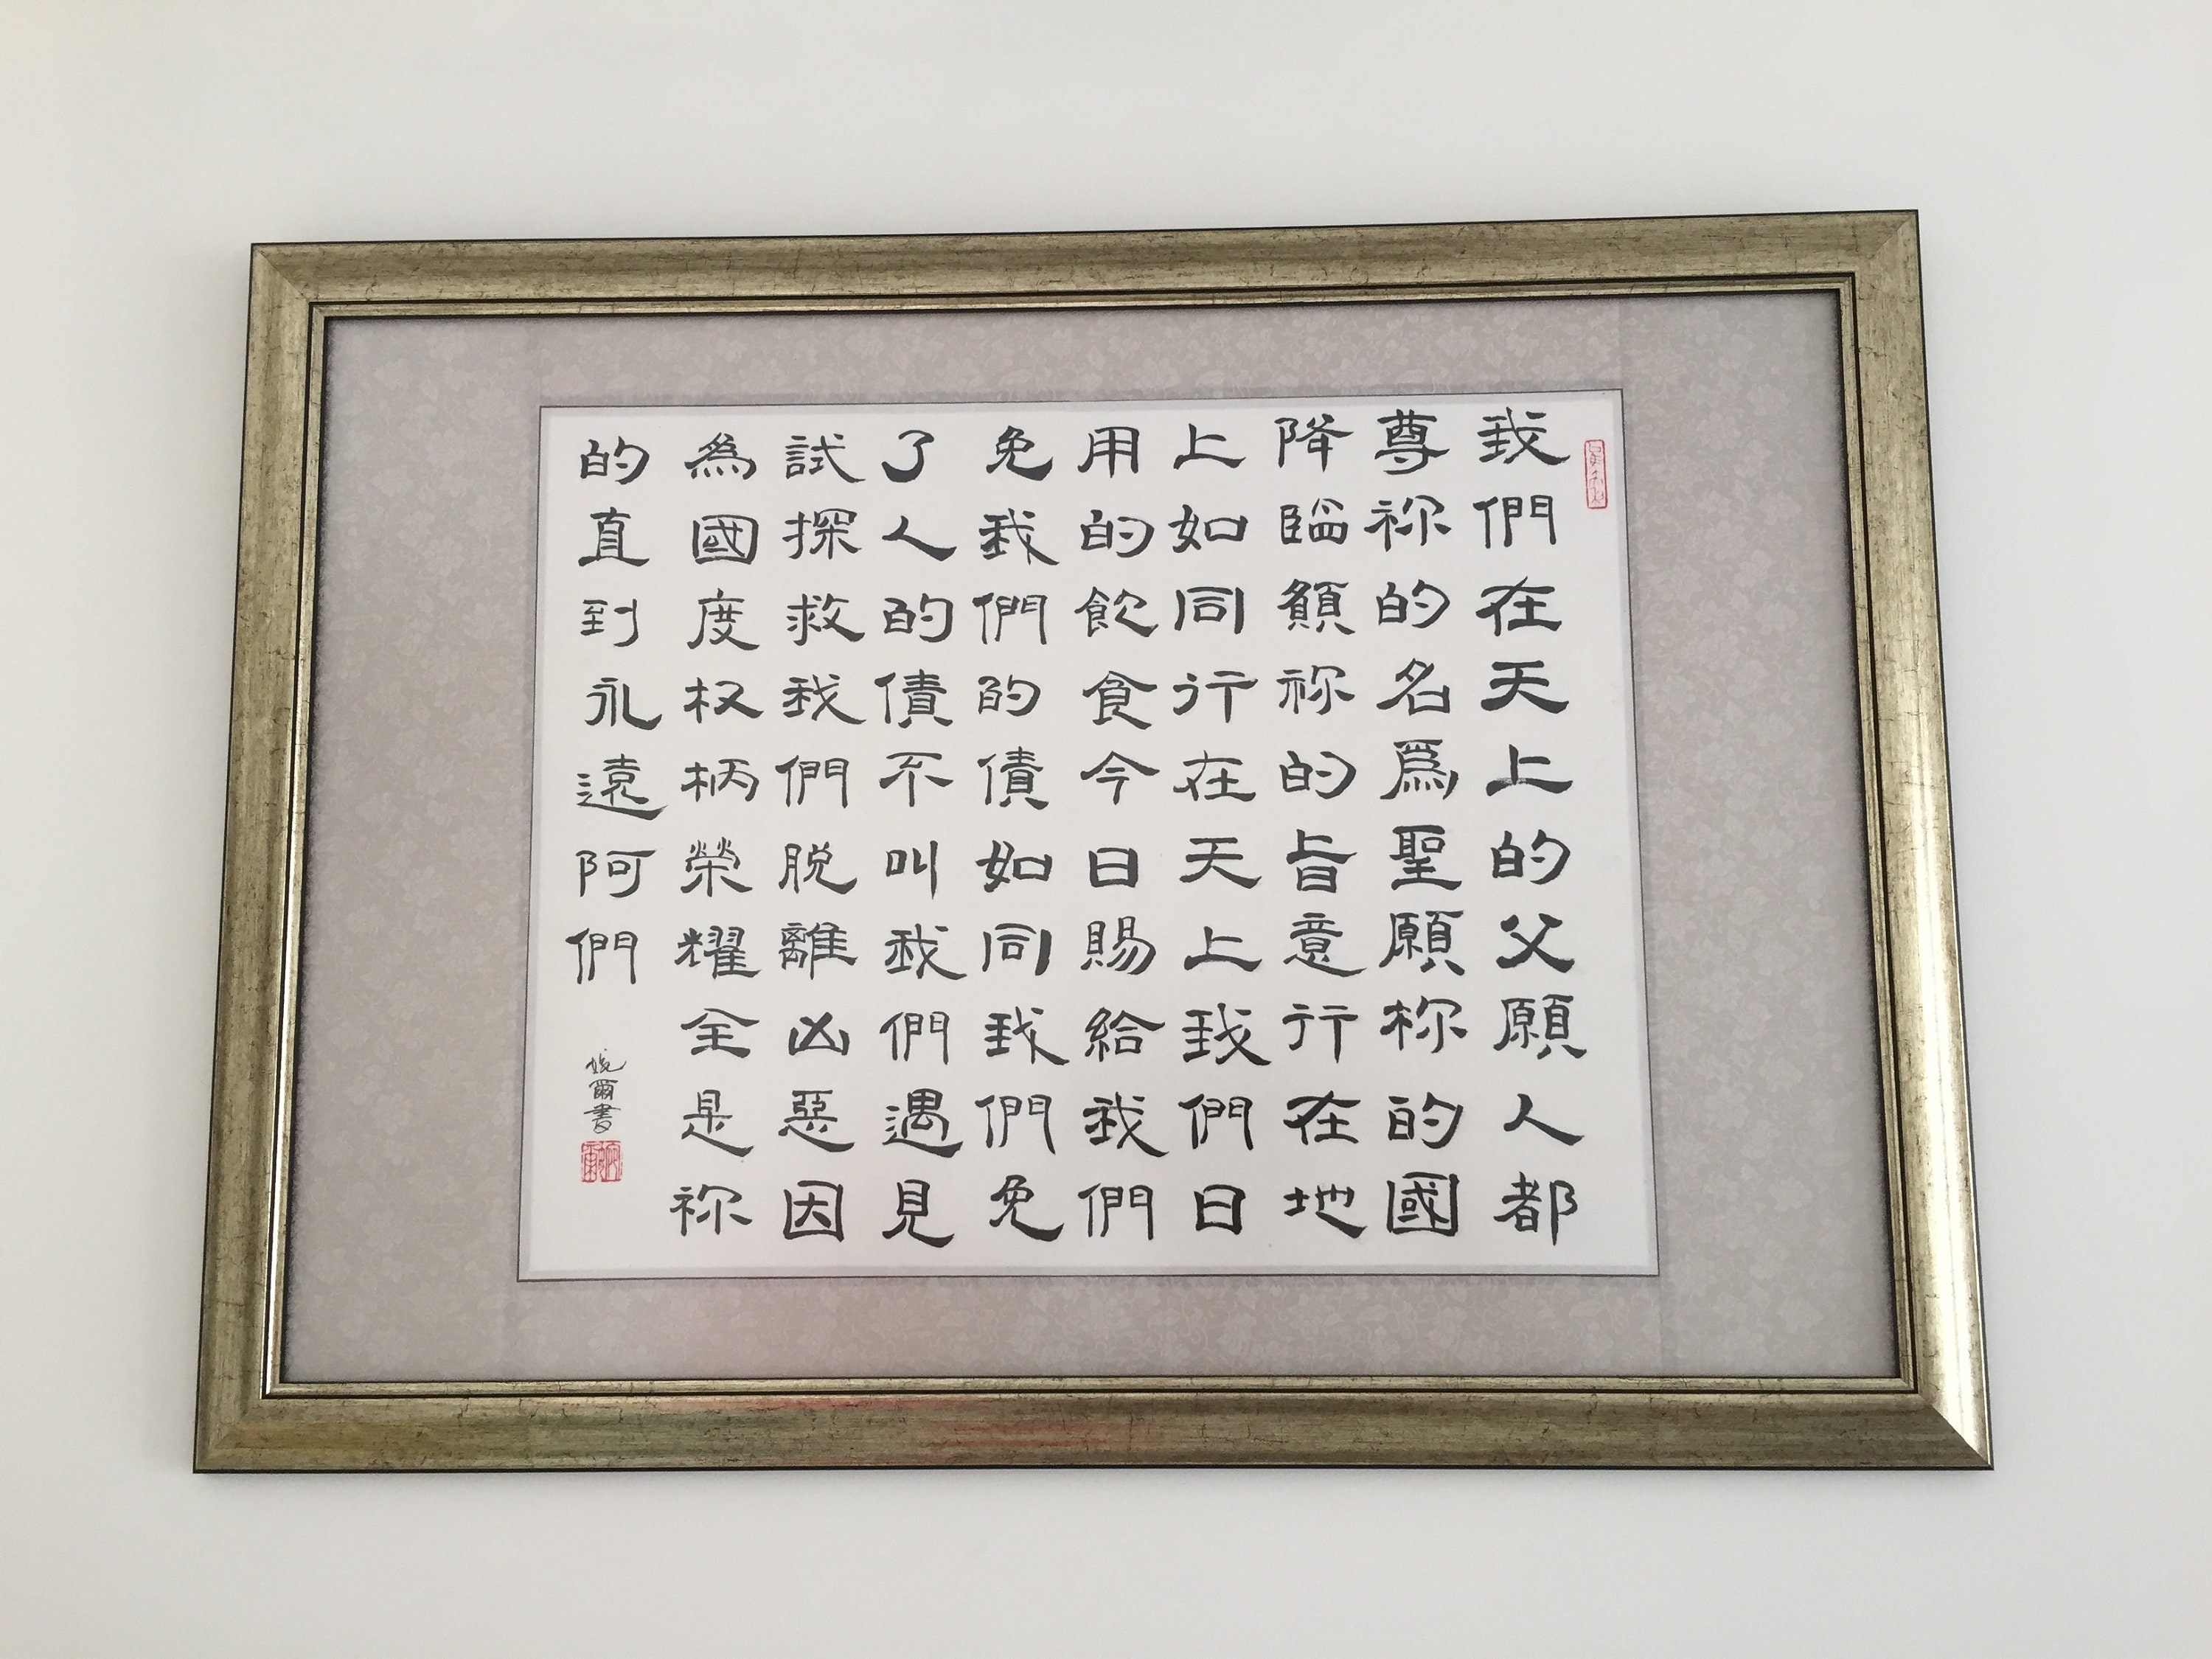 我們在天上的父願人都
尊祢的名爲聖願祢的國
降臨願祢的旨意行在地
上如同行在天上我們日
用的飲食今日賜給我們
免我們的債如同我們免
了人的債不叫我們遇見
試探救我們脫離凶惡因
為國度权柄榮耀全是祢
的直到永遠阿們
爾書